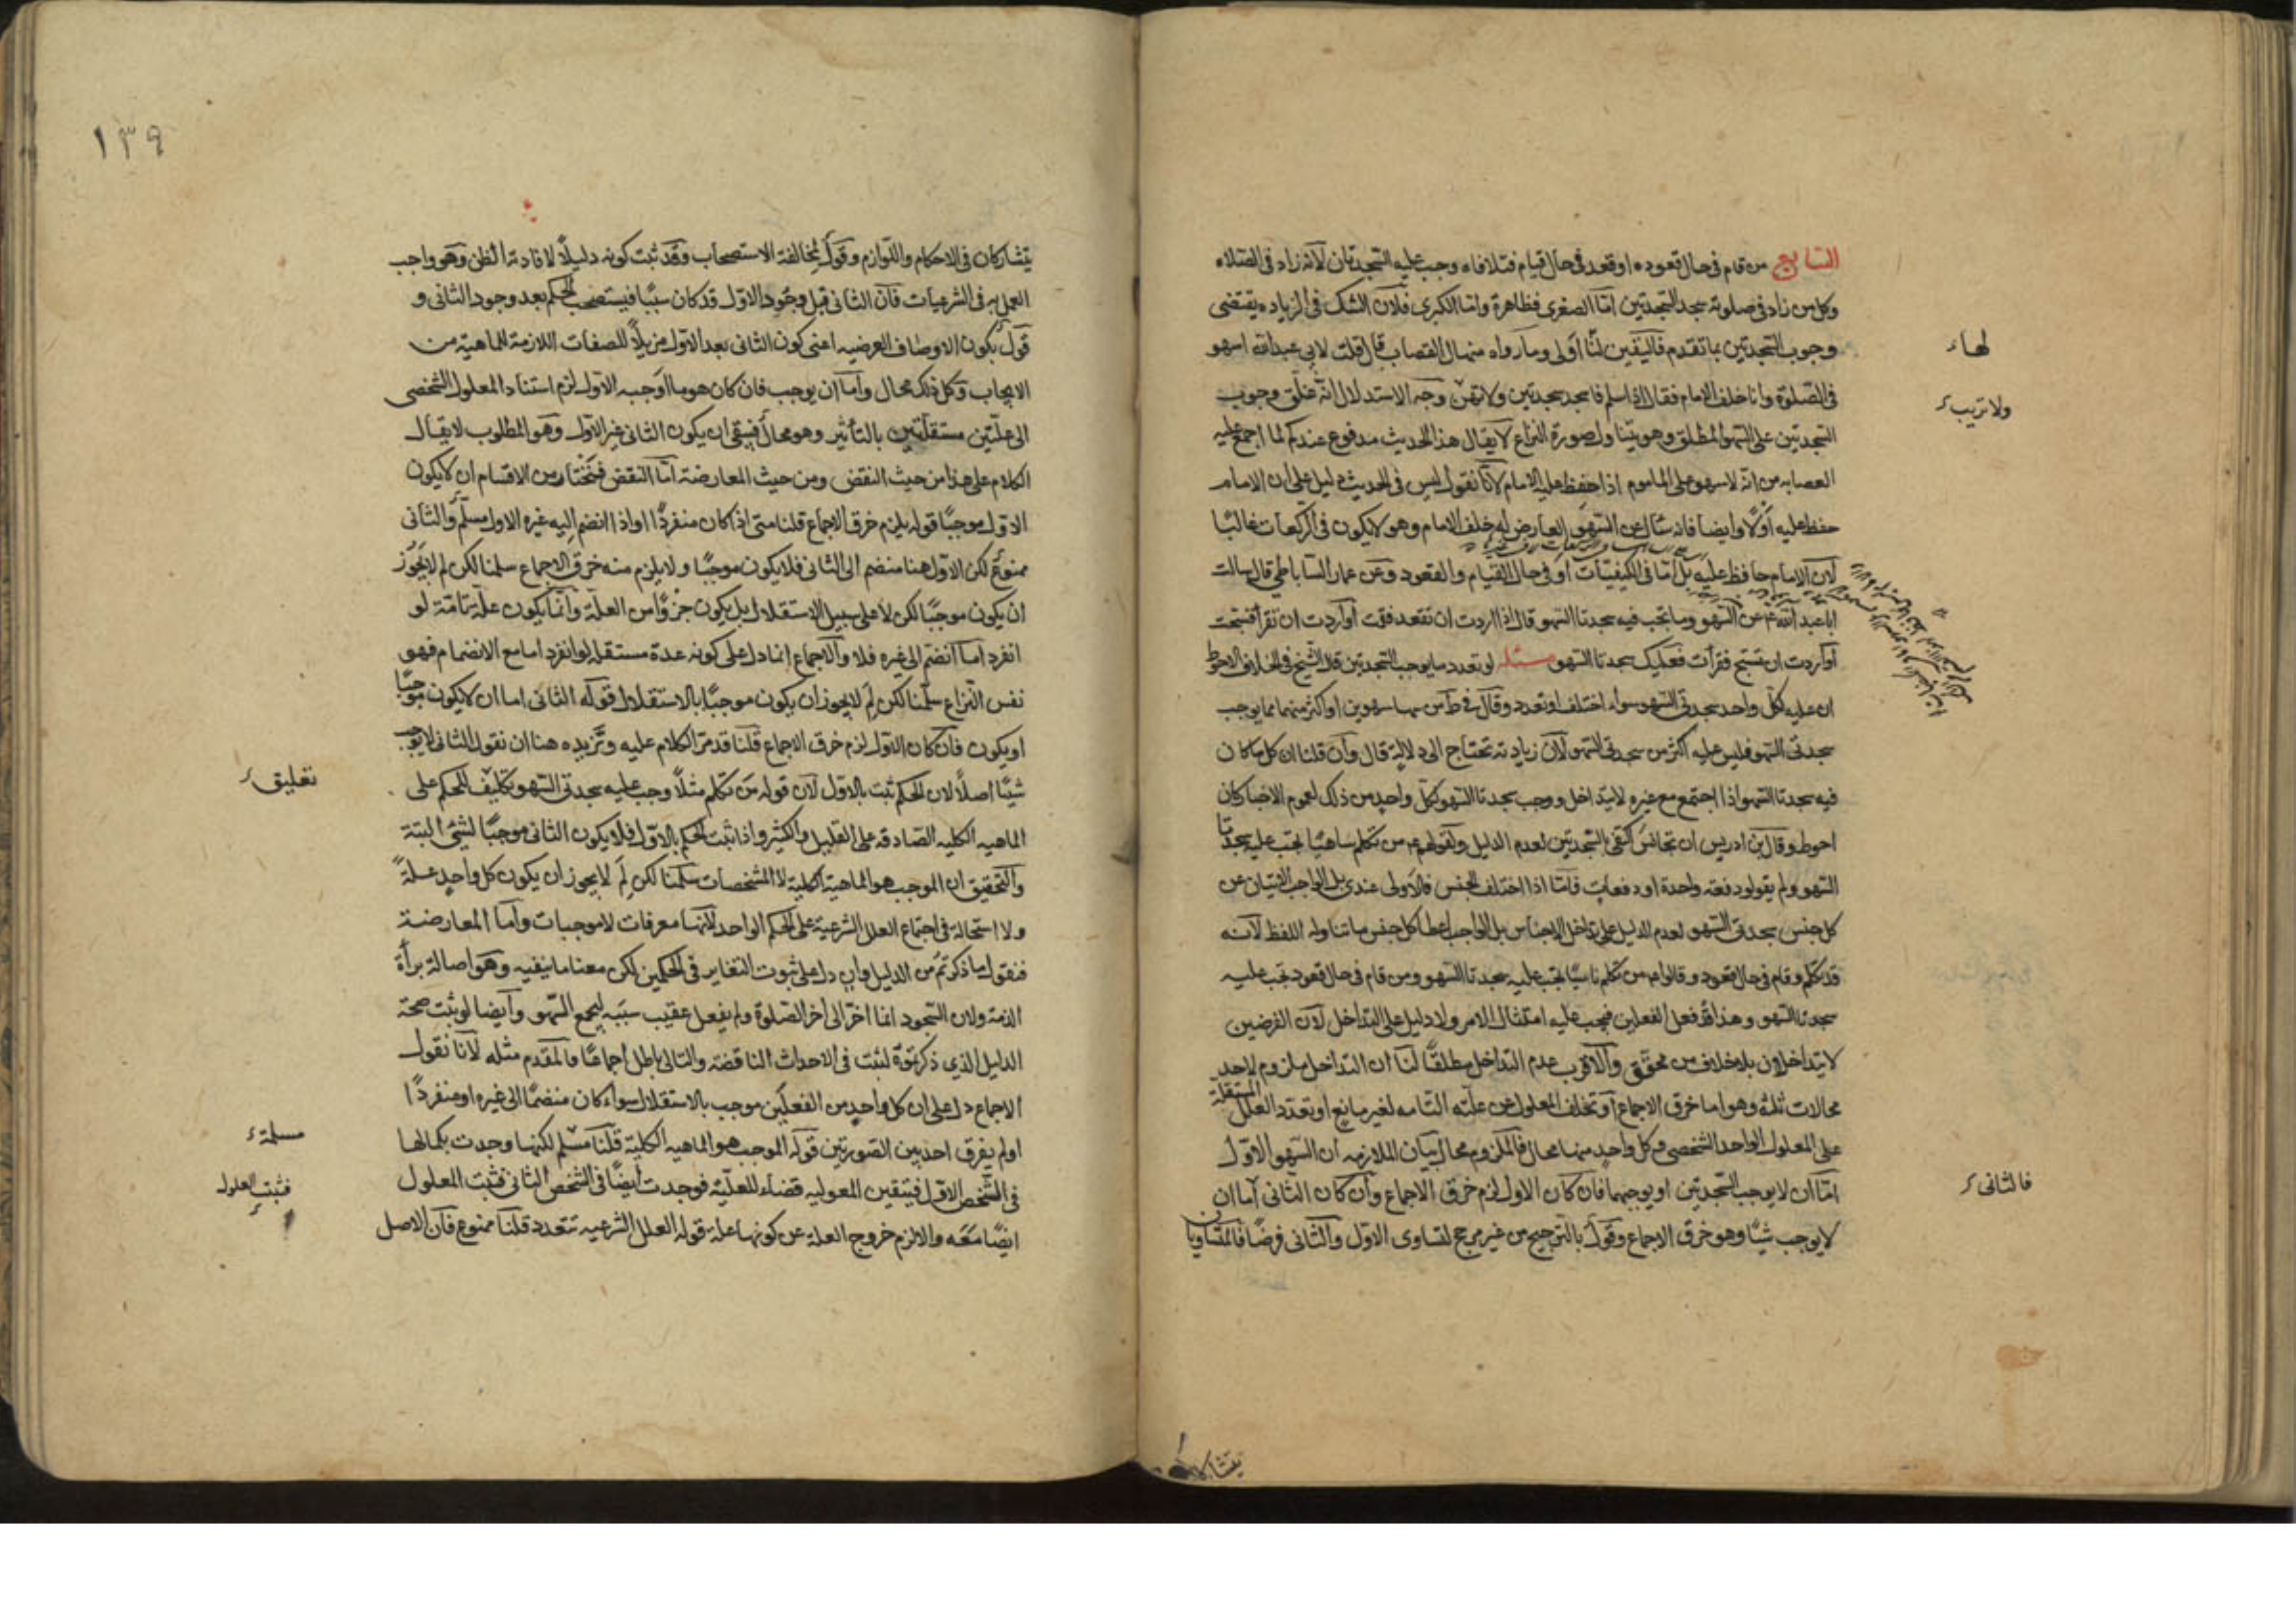 السابع من قام في حال قعوده او قعد في حال قيام فتلافاه وجب عليه السجدتان لانه زاد في الصلاه
وكل من زاد في صلوته سجد السجدتين امّا الصغرى فظاهرة وامّا الكبرى فلان الشك في الزياده يقتضى
وجوب السجدتين بما تقدم فاليقين لنا اولى وما رواه منهال القصاب قال قلت لابي عبد الله اسهو
لها
في الصلوة وانا خلف الامام فقال اذا سلم فاسجد سجدتين ولا تهن وجه الاستدلال انه علق وجوب
ولا تريب
السجدتين على السهو المطلق وهو يتناول صورة النزاع لا يقال هذا الحديث مدفوع عندكم لما اجمع عليه
العصابه من انه لا سهو على الماموم اذا حفظ عليه الامام لانا نقول ليس في الحديث دليل على ان الامام
حفظ عليه اولا وايضا فانه سال عن السهو العارض له خلف الامام وهو لا يكون في الركعات غالبا
لان الامام حافظ عليه بل امّا في الكيفيّات او في حال القيام والقعود وعن عمار الساباطي قال سالت
ابا عبد الله ع عن السهو وما تجب فيه سجدتا السهو قال اذا اردت ان تقعد فقمت او اردت ان تقرأ فسبحت
او اردت ان تسبح فقرأت فعليك سجدتا السهو مسئله لو تعدد ما يوجب السجدتين قال الشيخ في الخلاف الاحوط
ان عليه لكل واحد سجدتى السهو سواء اختلف او تعدد وقال في ط من سها سهوين او اكثر منهما بما يوجب
سجدتى السهو فليس عليه اكثر من سجدتى السهو لان زيادته تحتاج الى دلالة قال وان قلنا ان كل ما كان
فيه سجدتا السهو اذا اجتمع مع غيره لا يتداخل ووجب سجدتا السهو لكل واحد من ذلك لعموم الاخبار كان
احوط وقال بن ادريس ان تجانس اكتفى بالسجدتين لعدم الدليل ولقولهم ع من تكلم ساهيًا تجب عليه سجدتا
السهو ولم يقولوا دفعة واحدة او دفعات فامّا اذا اختلف الجنس فالاولى عندى بل الواجب الاتيان عن
كل جنس بسجدتى السهو لعدم الدليل على تداخل الاجناس بل الواجب اعطا كل جنس ما تناوله اللفظ لانه
قد تكلم وقام في حال قعود وقالوا ع من تكلم ناسيًا تجب عليه سجدتا السهو ومن قام في حال قعود تجب عليه
سجدتا السهو وهذا قد فعل الفعلين فيجب عليه امتثال الامر ولا دليل على التداخل لان الفرضين
لا يتداخلان بلا خلاف من محقّق والاقرب عدم التداخل مطلقًا لنا ان التداخل ملزوم لاحد
محالات ثلثة وهو اما خرق الاجماع او تخلف المعلول عن علّته التامه لغير مانع او تعدد العلل المستقلة
على المعلول الواحد الشخصى وكل واحد منها محال فالملزوم محال بيان الملازمه ان السهو الاوّل
امّا ان لا يوجب السجدتين او يوجبهما فان كان الاول لزم خرق الاجماع وان كان الثانى امّا ان
فالثانى
لا يوجب شيئًا وهو خرق الاجماع وقول بالترجيح من غير مرجح لتساوى الاول والثانى فرضًا فالمتساويان
يتشاركان
١٣٩
يتشاركان في الاحكام واللوازم وقول بمخالفة الاستصحاب وقد ثبت كونه دليلًا لافادته الظن وهو واجب
العمل به في الشرعيات فان الثانى قبل وجود الاوّل قد كان سببًا فيستصحب الحكم بعد وجود الثانى و
قول بكون الاوصاف العرضيه اعنى كون الثانى بعد الاوّل مزيلًا للصفات اللازمة للماهية من
الايجاب وكل ذلك محال وامّا ان يوجب فان كان هو ما اوجبه الاول لزم استناد المعلول الشخصى
الى علّتين مستقلّتين بالتأثير وهو محال فبقى ان يكون الثانى غير الاوّل وهو المطلوب لا يقال
الكلام على هذا من حيث النقض ومن حيث المعارضة امّا النقض فنختار من الاقسام ان لا يكون
الاول موجبًا قوله يلزم خرق الاجماع قلنا متى اذا كان منفردًا او اذا انضم اليه غيره الاول مسلّم والثانى
ممنوع لكن الاول هنا منضم الى الثانى فلا يكون موجبًا ولا يلزم منه خرق الاجماع سلمنا لكن لم لا يجوز
ان يكون موجبًا لكن لا على سبيل الاستقلال بل يكون جزؤًا من العلّة وانما يكون علّة تامّة لو
انفرد اما اذا انضم الى غيره فلا والاجماع انما دل على كونه علة مستقلة لو انفرد اما مع الانضمام فهو
نفس النزاع سلّمنا لكن لم لا يجوز ان يكون موجبًا بالاستقلال قوله الثانى اما ان لا يكون موجبًا
او يكون فان كان الاول لزم خرق الاجماع قلنا قد مرّ الكلام عليه ونزيده هنا ان نقول الثانى لا يوجب
شيئًا اصلًا لان الحكم ثبت بالاول لان قوله من تكلم مثلًا وجب عليه سجدتى السهو تكليف للحكم على
تعليق
الماهيه الكليه الصادقه على القليل والكثير واذا ثبت الحكم بالاوّل فلا يكون الثانى موجبًا لشئ البتة
والتحقيق ان الموجب هو الماهية الكلية لا المشخصات سلّمنا لكن لم لا يجوز ان يكون كل واحد علة
ولا استحالة في اجتماع العلل الشرعية على الحكم الواحد لانها معرفات لا موجبات واما المعارضة
فنقول ما ذكرتم من الدليل وان دل على ثبوت التغاير في الحكمين لكن معنا ما ينفيه وهو اصالة برأة
الذمة ولان السجود انما اخّر الى اخر الصلوة ولم يفعل عقيب سببه ليجمع السهو وايضا لو ثبت صحة
الدليل الذي ذكرتموه لثبت في الاحداث الناقضة والتالى باطل اجماعًا فالمقدم مثله لانا نقول
الاجماع دل على ان كل واحد من الفعلين موجب بالاستقلال سواء كان منضمًا الى غيره او منفردًا
اولم يفرق احد بين الصورتين قوله الموجب هو الماهيه الكلية قلنا مسلم لكنها وجدت بكمالها
مسلمة
في الشخص الاول فيتعين المعوليه قضاء للعلّية فوجدت ايضًا في الشخص الثانى فثبت المعلول
فثبت المعلول
ايضًا معه والا لزم خروج العلة عن كونها علة قوله العلل الشرعيه تتعدد قلنا ممنوع فان الاصل